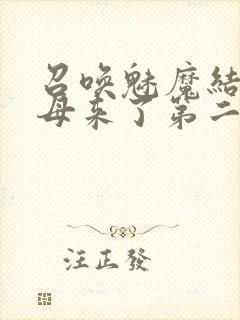 召唤魅魔結
母来了第二
汪正發